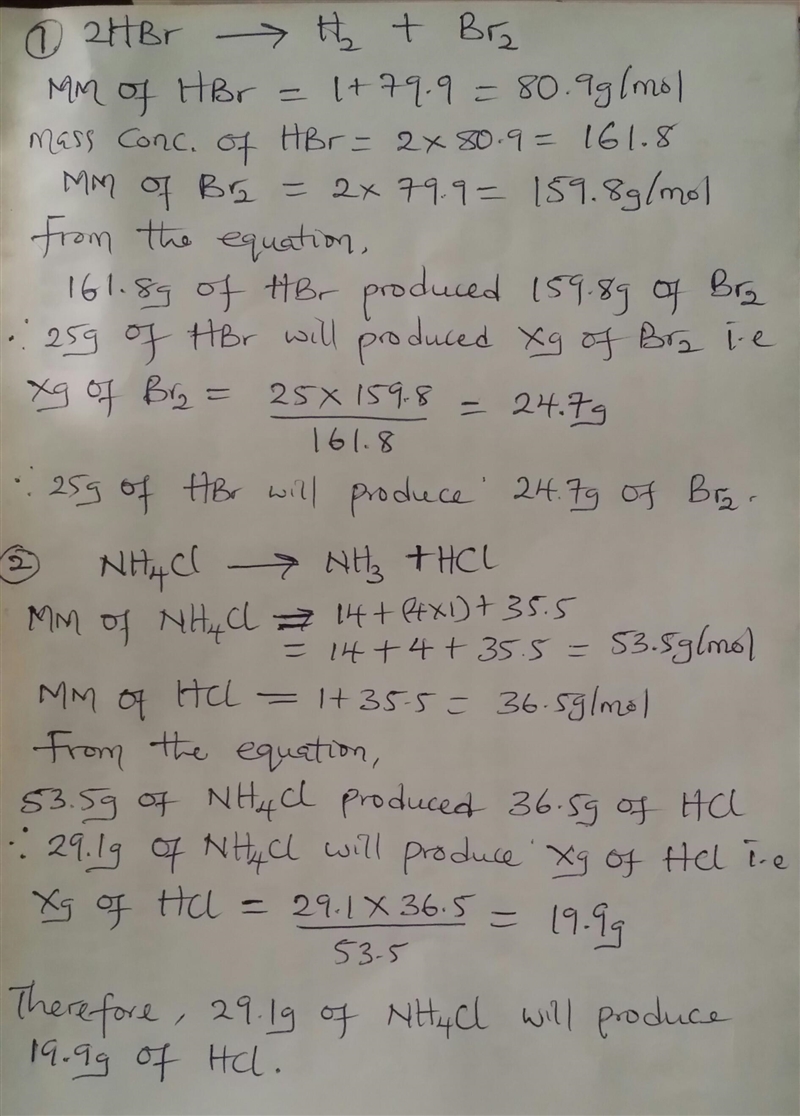 ① 2HBr → H₂ + Br₂
MM of HBr = 1 + 79.9 = 80.9g/mol
Mass Conc. of HBr = 2 × 80.9 = 161.8
MM of Br₂ = 2 × 79.9 = 159.8g/mol
From the equation,
161.8g of HBr produced 159.8g of Br₂
∴ 25g of HBr will produced xg of Br₂ i.e
xg of Br₂ = 25 × 159.8 / 161.8 = 24.7g
∴ 25g of HBr will produce 24.7g of Br₂.
② NH₄Cl → NH₃ + HCl
MM of NH₄Cl = 14 + (4×1) + 35.5
= 14 + 4 + 35.5 = 53.5g/mol
MM of HCl = 1 + 35.5 = 36.5g/mol
From the equation,
53.5g of NH₄Cl produced 36.5g of HCl
∴ 29.1g of NH₄Cl will produce xg of HCl i.e
xg of HCl = 29.1 × 36.5 / 53.5 = 19.9g
Therefore, 29.1g of NH₄Cl will produce
19.9g of HCl.